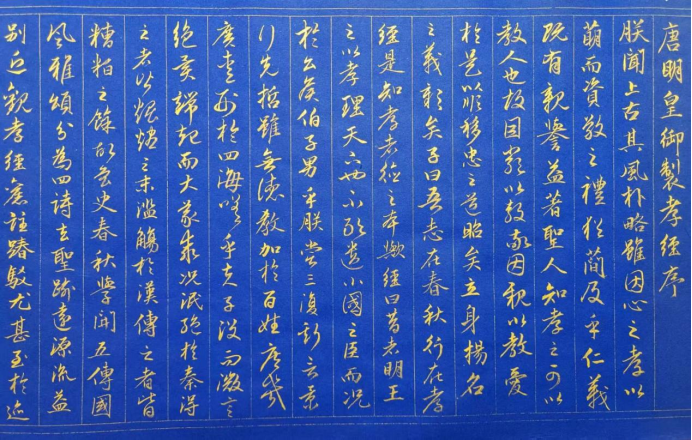 唐明皇御製孝經序
朕聞上古其風朴略雖因心之孝以
萌而資敬之禮猶簡及乎仁義
既有親譽益著聖人知孝之可以
教人也故因嚴以教敬因親以教愛
於是以順移忠之道昭矣立身揚名
之義彰矣子曰吾志在春秋行在孝
經是知孝者德之本歟經曰昔者明王
之以孝理天下也不敢遺小國之臣而況
於公侯伯子男乎朕嘗三復斯言景
行先哲雖無德教加於百姓庶幾
廣愛形於四海嗟乎夫子沒而微言
絕異端起而大義乖況泯絕於秦得
之者皆煨燼之末濫觴於漢傳之者皆
糟粕之餘故魯史春秋學開五傳國
風雅頌分為四詩去聖踰遠源流益
別近觀孝經舊註踳駁尤甚至於跡